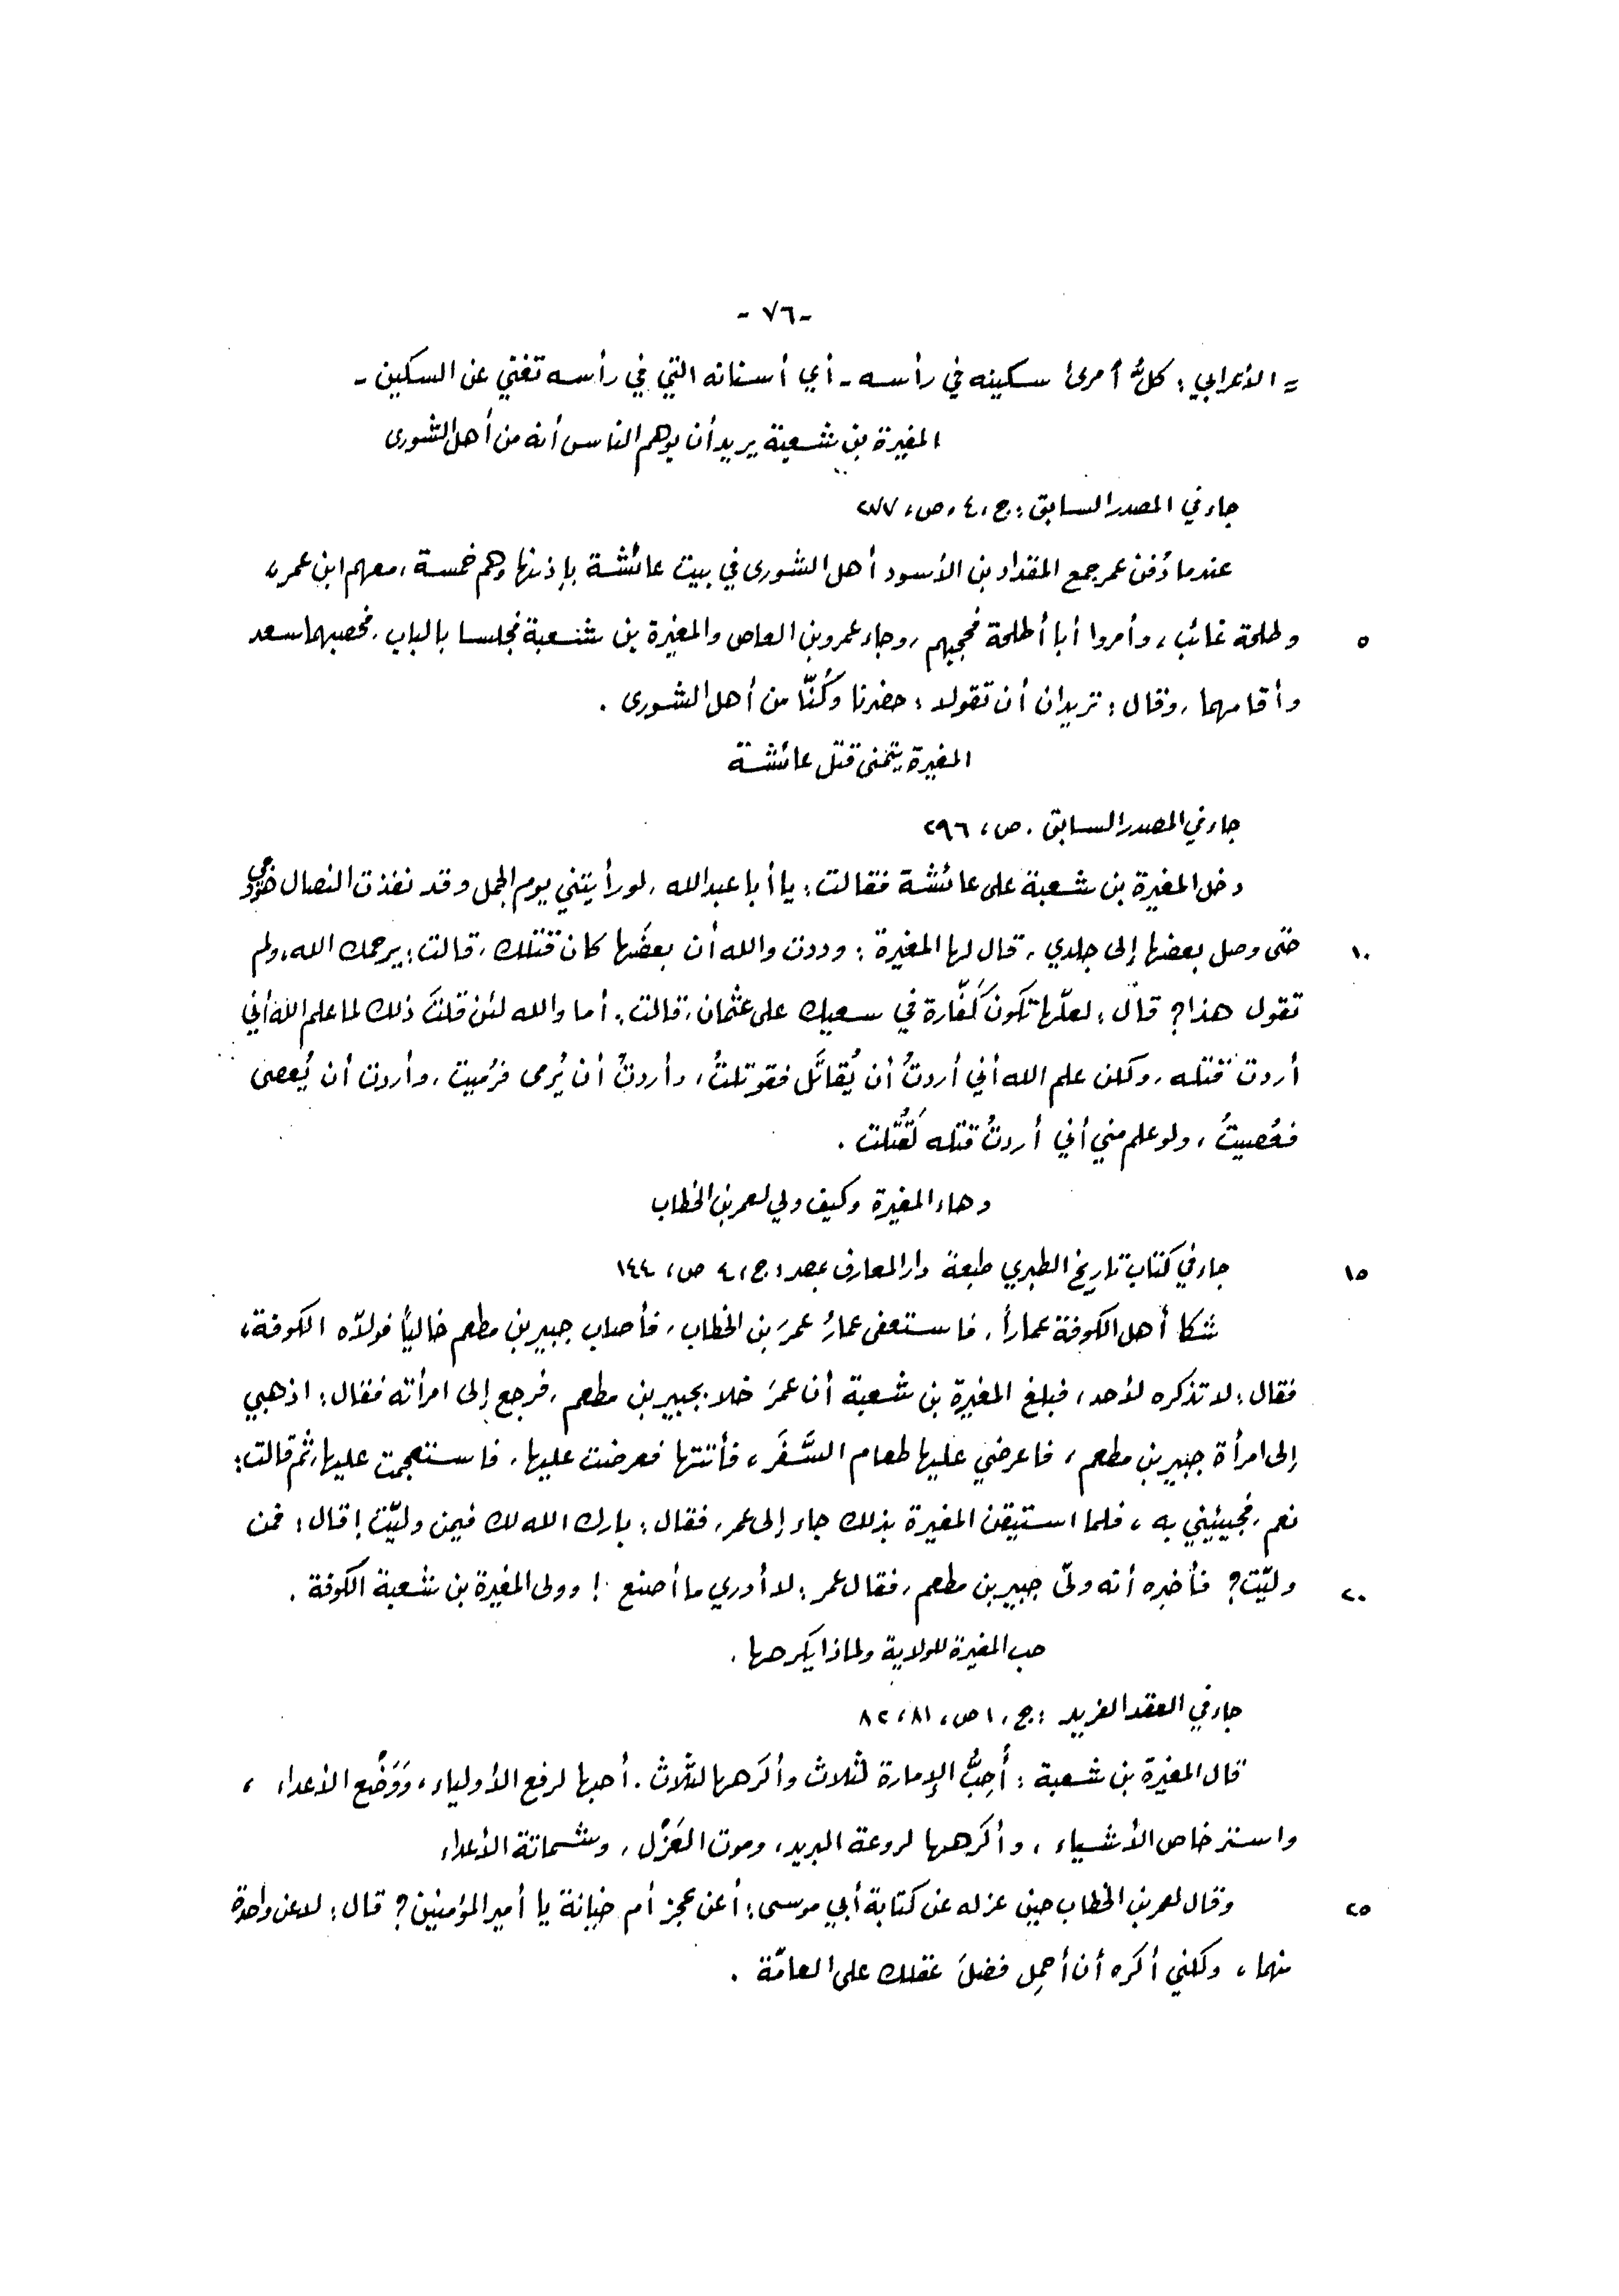 - ٧٦ -
= الأعرابي : كلُّ أمرئ سكينه في رأسه - أي أسنانه التي في رأسه تغني عن السكين -
المغيرة بن شعبة يريد أن يوهم الناس أنه من أهل الشورى
جاء في المصدر السابق : ج ، ٤ ، ص ، ٢٧٧
عندما دُفن عمر جمع المقداد بن الأسود أهل الشورى في بيت عائشة بإذنها وهم خمسة ، معهم ابن عمر ،
٥ وطلحة غائب ، وأمروا أبا أطلحة فحجبهم ، وجاء عمرو بن العاص والمغيرة بن شعبة فجلسا بالباب ، فحصبهما سعد
وأقامهما ، وقال : تريدان أن تقولا : حضرنا وكُنّا من أهل الشورى .
المغيرة يتمنى قتل عائشة
جاء في المصدر السابق . ص ، ٢٩٦
دخل المغيرة بن شعبة على عائشة فقالت : يا أبا عبد الله ، لو رأيتني يوم الجمل وقد نفذت النصال هودجي
١٠ حتى وصل بعضها إلى جلدي ، قال لها المغيرة : وددت والله أن بعضَها كان قتلك ، قالت : يرحمك الله ، ولم
تقول هذا ؟ قال : لعلّها تكون كَفّارة في سعيك على عثمان ، قالت : أما والله لئن قلتَ ذلك لما علم الله أني
أردت قتله ، ولكن علم الله أني أردتُ أن يُقاتَل فقوتلتُ ، وأردتُ أن يُرمى فرُميت ، وأردت أن يُعصى
فعُصيتُ ، ولو علم مني أني أردتُ قتله لَقُتلت .
دهاء المغيرة وكيف ولي لعمر بن الخطاب
١٥ جاء في كتاب تاريخ الطبري طبعة دار المعارف بمصر : ج ، ٤ ص ، ١٤٤
شكا أهل الكوفة عماراً ، فاستعفى عمارُ عمرَ بن الخطاب ، فأصاب جبير بن مطعم خالياً فولاّه الكوفة ،
فقال : لا تذكره لأحد ، فبلغ المغيرة بن شعبة أن عمرَ خلا بجبير بن مطعم ، فرجع إلى امرأته فقال : اذهبي
إلى امرأة جبير بن مطعم ، فاعرضي عليها طعام السَّفَر ، فأتتها فعرضت عليها ، فاستعجمت عليها ، ثم قالت :
نعم ، فجيئيني به ، فلما استيقن المغيرة بذلك جاء إلى عمر ، فقال : بارك الله لك فيمن وليّت ! قال : فمن
٢٠ وليّت ؟ فأخبره أنه ولّى جبير بن مطعم ، فقال عمر : لا أدري ما أصنع ! وولى المغيرة بن شعبة الكوفة .
حب المغيرة للولاية ولماذا يكرهها .
جاء في العقد الفريد : ج ، ١ ص ، ٨١ ، ٨٢
قال المغيرة بن شعبة : أُحِبُّ الإمارة لثلاث وأكرهها لثلاث . أحبها لرفع الأولياء ، وَوَضْع الأعداء ،
واسترخاص الأشياء ، وأكرهها لروعة البريد ، وموت العَزْل ، وشماتة الأعداء
٢٥ وقال لعمر بن الخطاب حين عزله عن كتابة أبي موسى : أعن عجز أم خيانة يا أمير المؤمنين ؟ قال : لا عن واحدة
منهما ، ولكني أكره أن أحمِل فضلَ عقلك على العامّة .